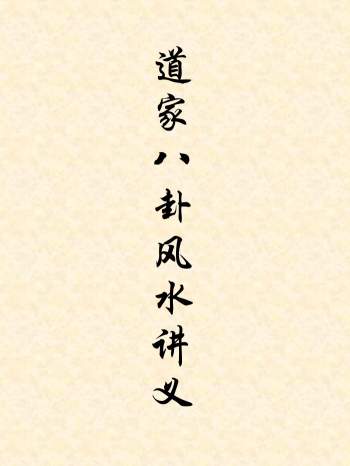 道家八卦风水讲义